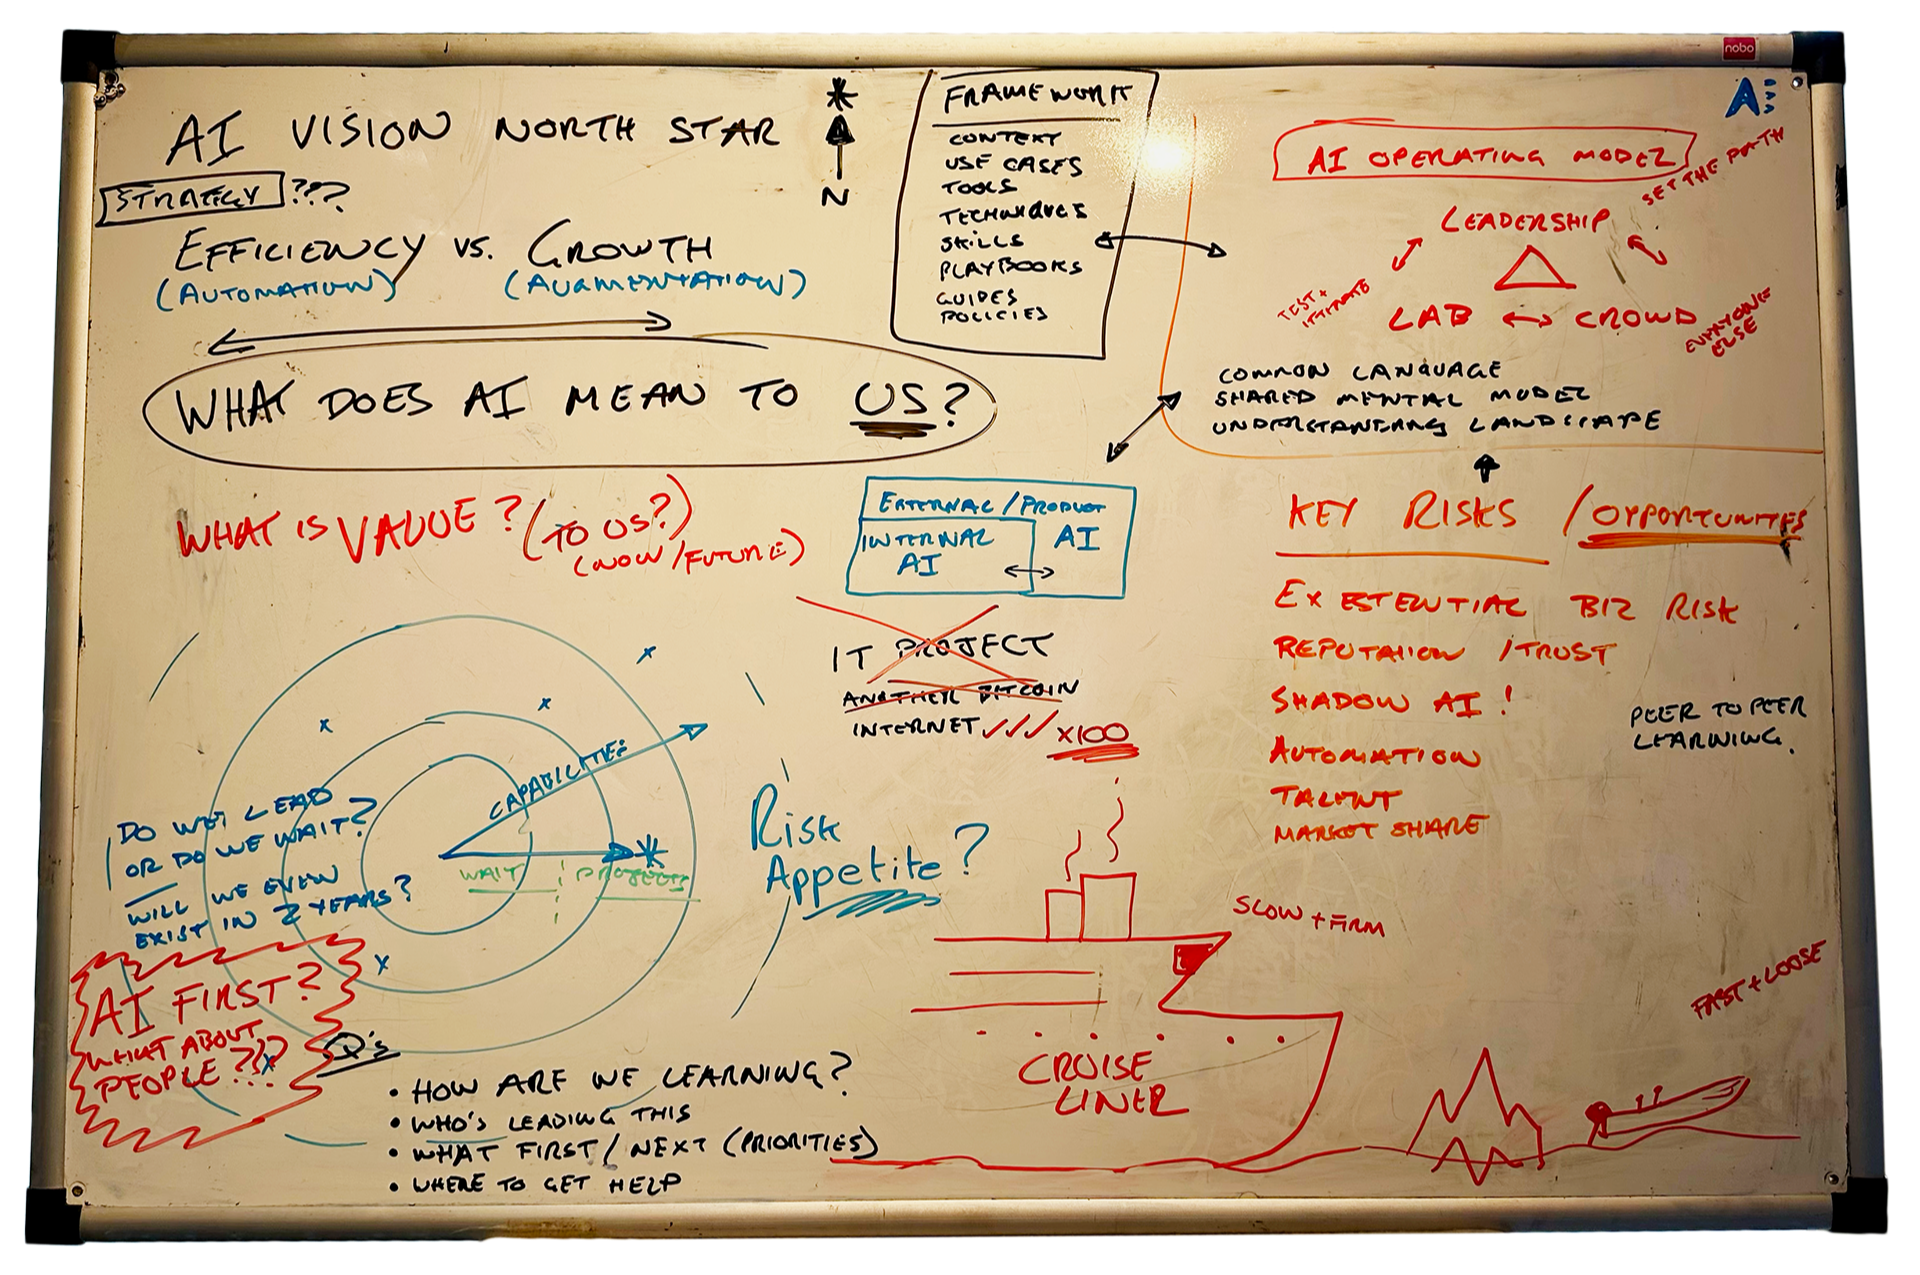 nobo
AI VISION NORTH STAR
N
STRATEGY ???
EFFICIENCY VS. GROWTH
(AUTOMATION) (AUGMENTATION)
WHAT DOES AI MEAN TO US?
FRAMEWORK
CONTEXT
USE CASES
TOOLS
TECHNIQUES
SKILLS
PLAYBOOKS
GUIDES
POLICIES
AI OPERATING MODEL
SET THE PATH
LEADERSHIP
TEST +
ITERATE
LAB
CROWD
EVERYONE
ELSE
COMMON LANGUAGE
SHARED MENTAL MODEL
UNDERSTANDING LANDSCAPE
WHAT IS VALUE? (TO US?)
(NOW/FUTURE)
EXTERNAL/PRODUCT
AI
INTERNAL
AI
IT PROJECT
ANOTHER BITCOIN
INTERNET ✓✓✓ x100
KEY RISKS / OPPORTUNITIES
EXISTENTIAL BIZ RISK
REPUTATION /TRUST
SHADOW AI!
AUTOMATION
TALENT
MARKET SHARE
PEER TO PEER
LEARNING.
CAPABILITIES
WAIT
PROJECTS
DO WE LEAD
OR DO WE WAIT?
WILL WE EVEN
EXIST IN 2 YEARS?
Risk
Appetite?
AI FIRST?
WHAT ABOUT
PEOPLE???
Q's
• HOW ARE WE LEARNING?
• WHO'S LEADING THIS
• WHAT FIRST/NEXT (PRIORITIES)
• WHERE TO GET HELP
SLOW + FIRM
CRUISE
LINER
FAST + LOOSE